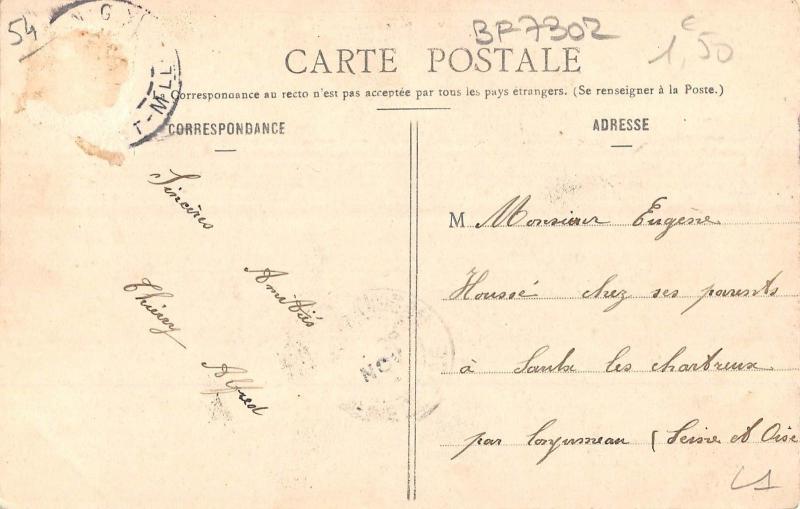 54
BF7302
1,50 €
CARTE POSTALE
Correspondance au recto n'est pas acceptée par tous les pays étrangers. (Se renseigner à la Poste.)
CORRESPONDANCE
ADRESSE
T-M
Sincères
Amitiés
Thiéry
Alfred
NOV
M Monsieur Eugène
Houssé chez ses parents
à Saulx les chartreux
par Longjumeau (Seine et Oise